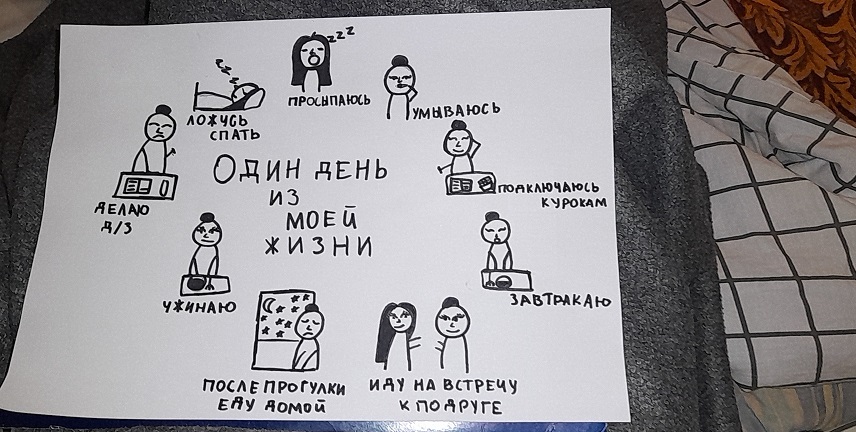 ОДИН ДЕНЬ
ИЗ
МОЕЙ
ЖИЗНИ
zzz
ПРОСЫПАЮСЬ
УМЫВАЮСЬ
ПОДКЛЮЧАЮСЬ
К УРОКАМ
ЗАВТРАКАЮ
ИДУ НА ВСТРЕЧУ
К ПОДРУГЕ
ПОСЛЕ ПРОГУЛКИ
ЕДУ ДОМОЙ
УЖИНАЮ
ДЕЛАЮ
Д/З
ЛОЖУСЬ
СПАТЬ
zzz